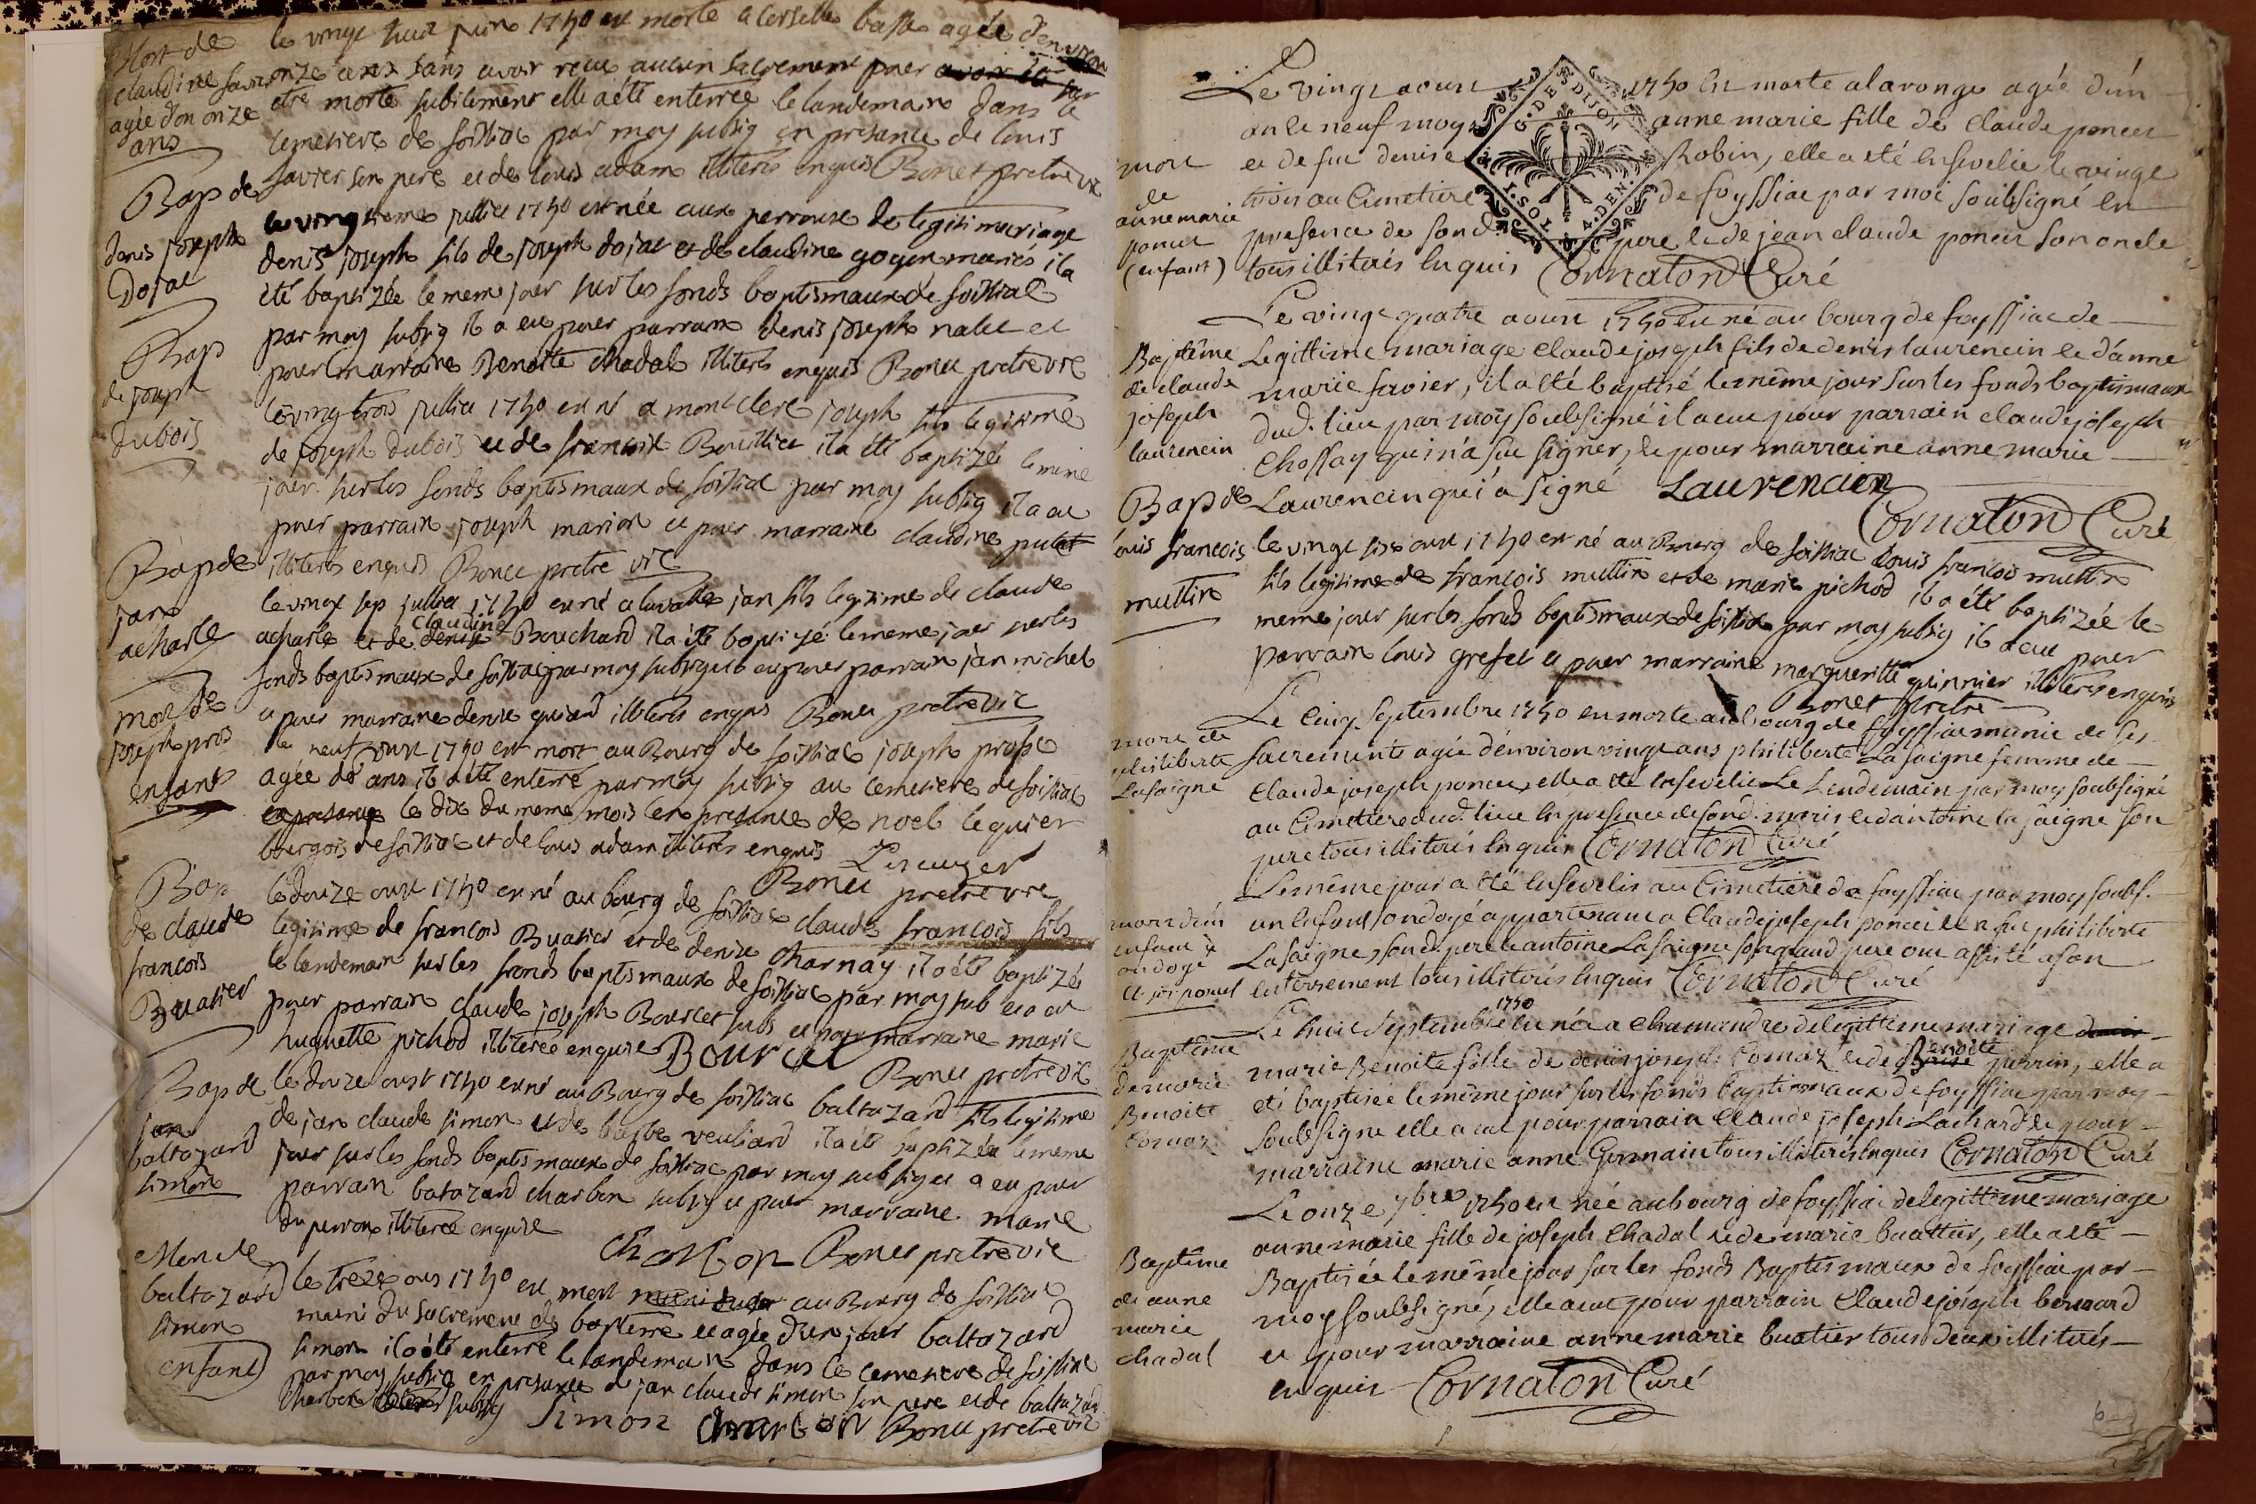 Mort de
claudine savier
agée d'on onze
ans
le vingt huit juin 1740 est morte a corselles basse agée d'environ
onze ans sans avoir reçue aucun sacrement pour
etre morte subitement elle a été enterrée le landemain dans le
cemetiere de foissiac par moy subsig en presance de louis
savier son pere et de louis adam illiterés enquis Bonet pretre vic
Bap de
denis joseph
Dojat
le vingt juillet 1740 est née aux perrouse de legitimariage
denis joseph fils de joseph dojat et de claudine goyon mariés il a
été baptizée le meme jour sur les fonds baptismaux de foissiac
par moy subsig il a eu pour parrain denis joseph nalet et
pour marraine Benoite chadal illiterés enquis Bonet pretre vic
Bap
de joseph
dubois
le vingt trois juillet 1740 est né a montclere joseph fils legitime
de joseph dubois et de francoise Bouillier il a été baptizée le meme
jour sur les fonds baptismaux de foissiac par moy subsig il a eu
pour parrain joseph marion et pour marraine claudine putet
illiterés enquis Bonet pretre vic
Bap de
jan
acharle
le vingt sep juillet 1740 est né a lavalla jan fils legitime de claude
acharle et de claudine Bouchard il a été baptizé le meme jour sur les
fonds baptismaux de foissiac par moy subsig il a eu pour parrain jan michel
et pour marraine denise guiard illiterés enquis Bonet pretre vic
mort de
joseph pros
enfant
le neuf oust 1740 est mort au Bourg de foissiac joseph prosse
agée de ans il a été enterré par moy subsig au cemetiere de foissiac
en presance le dix du meme mois en presance de noel lequier
bourgois de foissiac et de louis adam illiteres enquis
Bonet pretre vic
Bap
de claude
francois
Buatier
le douze oust 1740 est né au bourg de foissiac claude francois fils
legitime de francois Buatier et de denise charnay il a été baptizé
le landemain sur les fonds baptismaux de foissiac par moy sub et a eu
pour parrain claude joseph Bourcet subs et pour marraine marie
huguette pichod illiterée enquise Bourcet
Bonet pretre vic
Bap de
jan
baltazard
simon
le douze oust 1740 est né au Bourg de foissiac baltazard fils legitime
de jan claude simon et de barbe veuliard il a été baptizée le meme
jour sur les fonds baptismaux de foissiac par moy subsig et a eu pour
parrain batazard charbon subsig et pour marraine marie
du perron illiterée enquise
charbon Bonet pretre vic
Mort de
baltazard
simon
enfant
le treze ous 1740 est mort au Bourg de foissiac
muni du sacrement de bapteme et agée d'un jour baltazard
simon il a été enterré le landemain dans le cemetiere de foissiac
par moy subsig en presance de jan claude simon son pere et de baltazard
charbon subsig Simon charbon Bonet pretre vic
G. DES DIJON
1. SOL 4. DEN.
mort
de
anne marie
poncet
(enfant)
Le vingt aoust 1740 est morte a la ronge agée d'un
an et neuf moys anne marie fille de Claude poncet
et de fue denise Robin, elle a eté ensevelie le vingt
trois au Cimetiere de foyssiac par moi soubsigné en
presence de sond. pere et de jean claude poncet son oncle
tous illiterés enquis Cornaton Curé
Baptême
de claude
joseph
laurencin
Le vingt quatre aoust 1740 est né au bourg de foyssiac de
legittime mariage claude joseph fils de denis laurencin et d'anne
marie favier, il a eté baptisé le même jour sur les fonds baptismaux
dud. lieu par moy soubsigné il a eu pour parrain claude joseph
Chossay qui n'a su signer, et pour marraine anne marie
Laurencin qui a signé Laurencien
Cornaton Curé
Bap de
louis francois
muttin
le vingt six oust 1740 est né au Bourg de foissiac louis francois muttin
fils legitime de francois muttin et de marie pichod il a été baptizée le
meme jour sur les fonds baptismaux de foissiac par moy subsig il a eu pour
parrain louis grefet et pour marraine margueritte guinnier illiteres enquis
Bonet pretre
mort de
philiberte
Lasaigne
Le Cinq Septembre 1740 est morte au bourg de foyssiac munie de ses
sacrements agée d'environ vingt ans philiberte Lasaigne femme de
Claude joseph poncet, elle a eté ensevelie Le Lendemain par moy soubsigné
au Cimetiere dud. lieu en presence de sond. maris et d'antoine lasaigne son
pere tous illiterés enquis Cornaton Curé
mort d'un
enfant
ondoyé
a poncet
Le même jour a eté ensevelis au Cimetiere de foyssiac par moy soubs.
un enfant ondoyé appartenant a Claude joseph poncet et a fue philiberte
Lasaigne, sond. pere et antoine Lasaigne son grand pere ont assisté a son
enterrement tous illiterés enquis Cornaton Curé
Baptême
de marie
Benoite
Cornaz
Le huit Septembre 1740 est née a Chamandre de legittime mariage
marie Benoite fille de denis joseph Cornaz et de Benoite perrin, elle a
eté baptisée le même jour sur les fonds baptismaux de foyssiac par moy
soubsigné elle a eu pour parrain Claude joseph Lachard et pour
marraine marie anne Germain tous illiterés enquis Cornaton Curé
Baptême
de anne
marie
chadal
Le onze 7bre 1740 est née au bourg de foyssiac de legittime mariage
anne marie fille de joseph Chadal et de marie buattier, elle a eté
Baptisée le même jour sur les fonds Baptismaux de foyssiac par
moy soubsigné, elle a eu pour parrain Claude joseph bernard
et pour marraine anne marie buatier tous deux illiterés
enquis Cornaton Curé